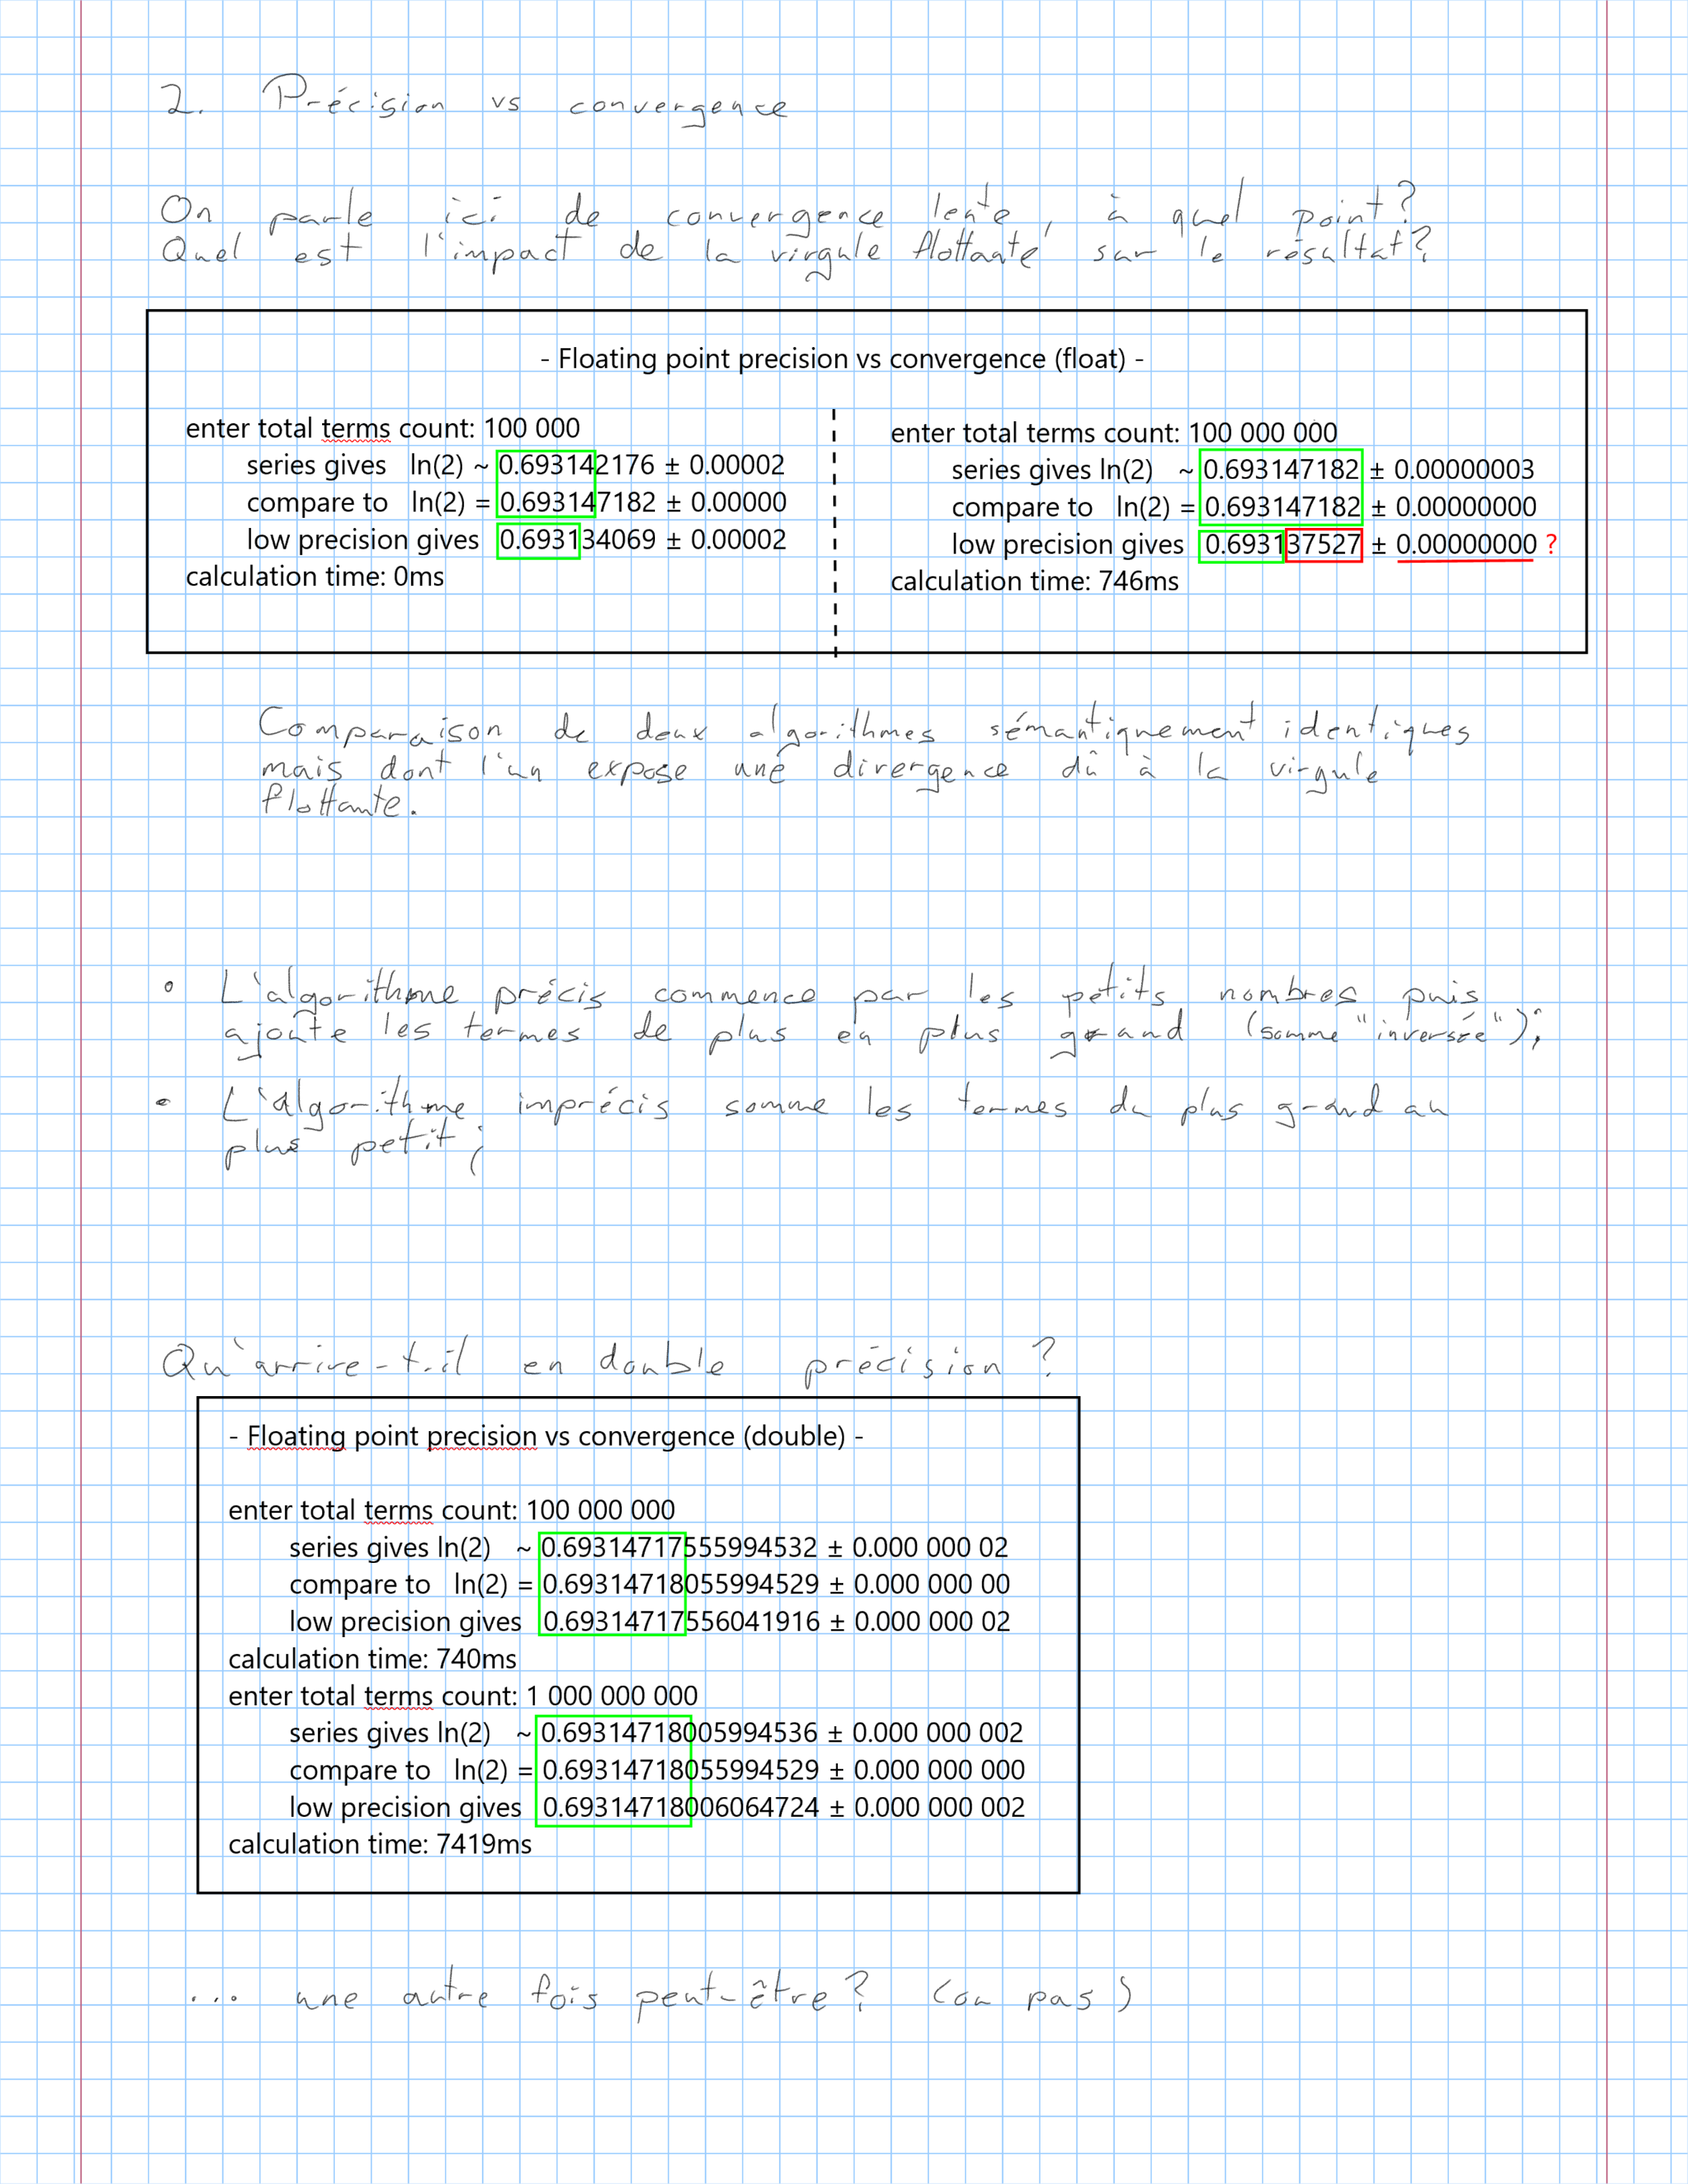 2. Précision vs convergence
On parle ici de convergence lente, à quel point?
Quel est l'impact de la virgule flottante sur le résultat?
- Floating point precision vs convergence (float) -
enter total terms count: 100 000
series gives ln(2) ~ 0.693142176 ± 0.00002
compare to ln(2) = 0.693147182 ± 0.00000
low precision gives 0.693134069 ± 0.00002
calculation time: 0ms
enter total terms count: 100 000 000
series gives ln(2) ~ 0.693147182 ± 0.00000003
compare to ln(2) = 0.693147182 ± 0.00000000
low precision gives 0.693137527 ± 0.00000000 ?
calculation time: 746ms
Comparaison de deux algorithmes sémantiquement identiques
mais dont l'un expose une divergence dû à la virgule
flottante.
• L'algorithme précis commence par les petits nombres puis
ajoute les termes de plus en plus grand (somme "inversée");
• L'algorithme imprécis somme les termes du plus grand au
plus petit;
Qu'arrive-t-il en double précision?
- Floating point precision vs convergence (double) -
enter total terms count: 100 000 000
series gives ln(2) ~ 0.69314717555994532 ± 0.000 000 02
compare to ln(2) = 0.69314718055994529 ± 0.000 000 00
low precision gives 0.69314717556041916 ± 0.000 000 02
calculation time: 740ms
enter total terms count: 1 000 000 000
series gives ln(2) ~ 0.69314718005994536 ± 0.000 000 002
compare to ln(2) = 0.69314718055994529 ± 0.000 000 000
low precision gives 0.69314718006064724 ± 0.000 000 002
calculation time: 7419ms
... une autre fois peut-être? (ou pas)